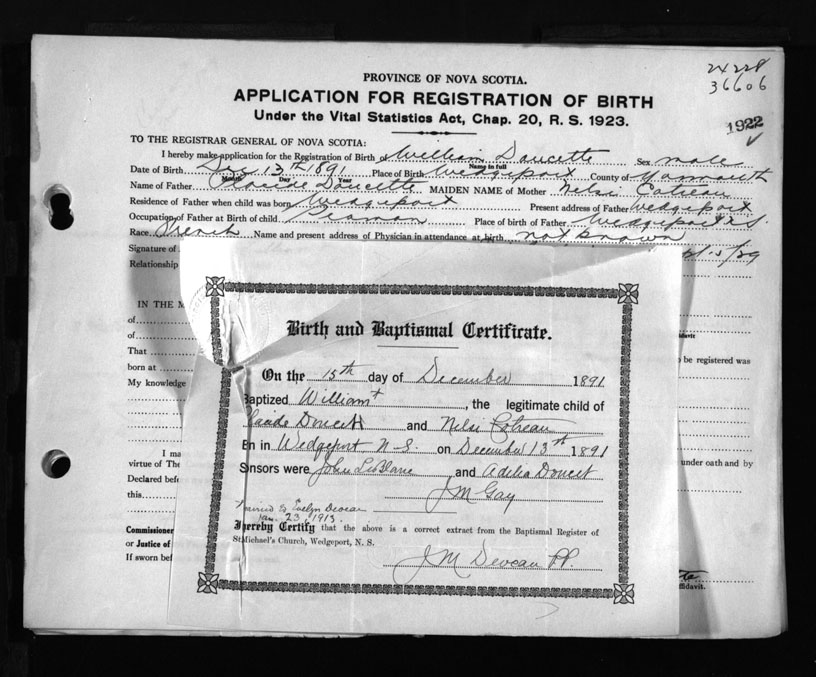 24228
36606
1922
PROVINCE OF NOVA SCOTIA.
APPLICATION FOR REGISTRATION OF BIRTH
Under the Vital Statistics Act, Chap. 20, R. S. 1923.
TO THE REGISTRAR GENERAL OF NOVA SCOTIA:
I hereby make application for the Registration of Birth of William Doucette Sex male
Name in full
Date of Birth Dec 13th 1891 Place of Birth Wedgeport County of Yarmouth
Month Day Year
Name of Father Placide Doucette MAIDEN NAME of Mother Nelsi Cotreau
Residence of Father when child was born Wedgeport Present address of Father Wedgeport
Occupation of Father at Birth of child Place of birth of Father Wedgeport N.S.
Race French Name and present address of Physician in attendance at birth not known
Signature of
Relationship
IN THE M
of
of
That be registered was
born at
My knowledge
I ma under oath and by
virtue of The
Declared before
this
Commissioner
or Justice of
If sworn bef
Birth and Baptismal Certificate.
On the 15th day of December 1891
Baptized William, the legitimate child of
lacide Doucett and Nelsi Cotreau
En in Wedgeport N-S on December 13th 1891
Sinsors were John LeBlanc and Adelia Doucet
J M Gay
Married to Evelyn Deveau
Jan. 23, 1913.
I hereby Certify that the above is a correct extract from the Baptismal Register of
St. Michael's Church, Wedgeport, N. S.
J M Deveau PP.